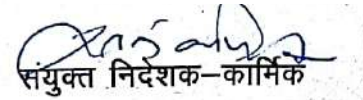 संयुक्त निदेशक–कार्मिक